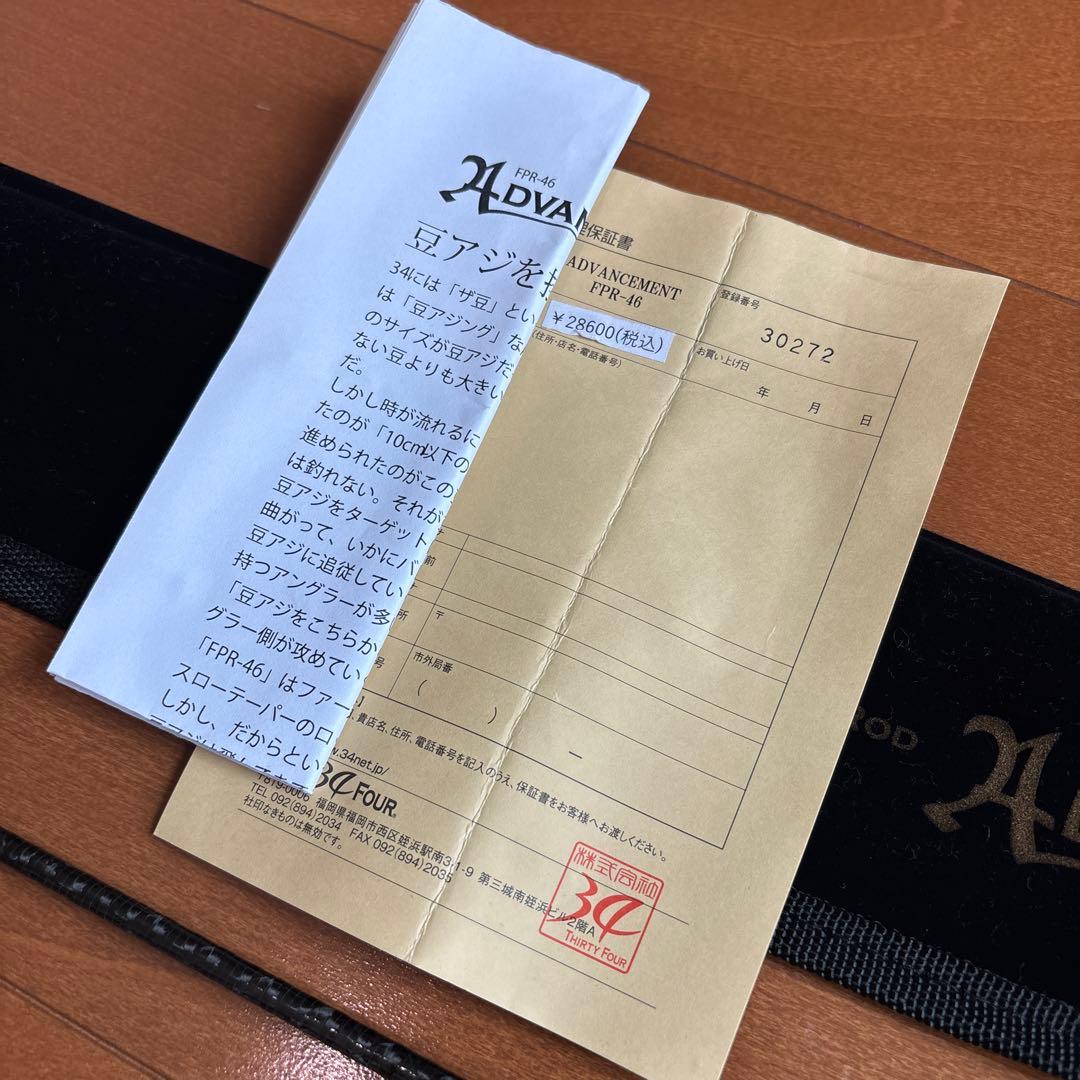 FPR-46
ADVAN
豆アジを
34には「ザ豆」とい
は「豆アジング」な
のサイズが豆アジだ
ない豆よりも大きい
だ。
しかし時が流れるに
たのが「10cm以下の
進められたのがこの
は釣れない。それが
豆アジをターゲット
曲がって、いかにバ
豆アジに追従してい
持つアングラーが多
「豆アジをこちらか
グラー側が攻めてい
「FPR-46」はファー
スローテーパーのロ
しかし、だからとい
保証書
ADVANCEMENT
FPR-46
¥28600(税込)
(住所・店名・電話番号)
登録番号
30272
お買い上げ日
年 月 日
前
所
〒
号
市外局番
( ) —
、貴店名、住所、電話番号を記入のうえ、保証書をお客様へお渡しください。
w.34net.jp/
34 FOUR®
〒819-0006 福岡県福岡市西区姪浜駅南3-1-9 第三城南姪浜ビル2階A
TEL 092(894)2034 FAX 092(894)2035
社印なきものは無効です。
株式会社
34
THIRTY FOUR
ROD
AD